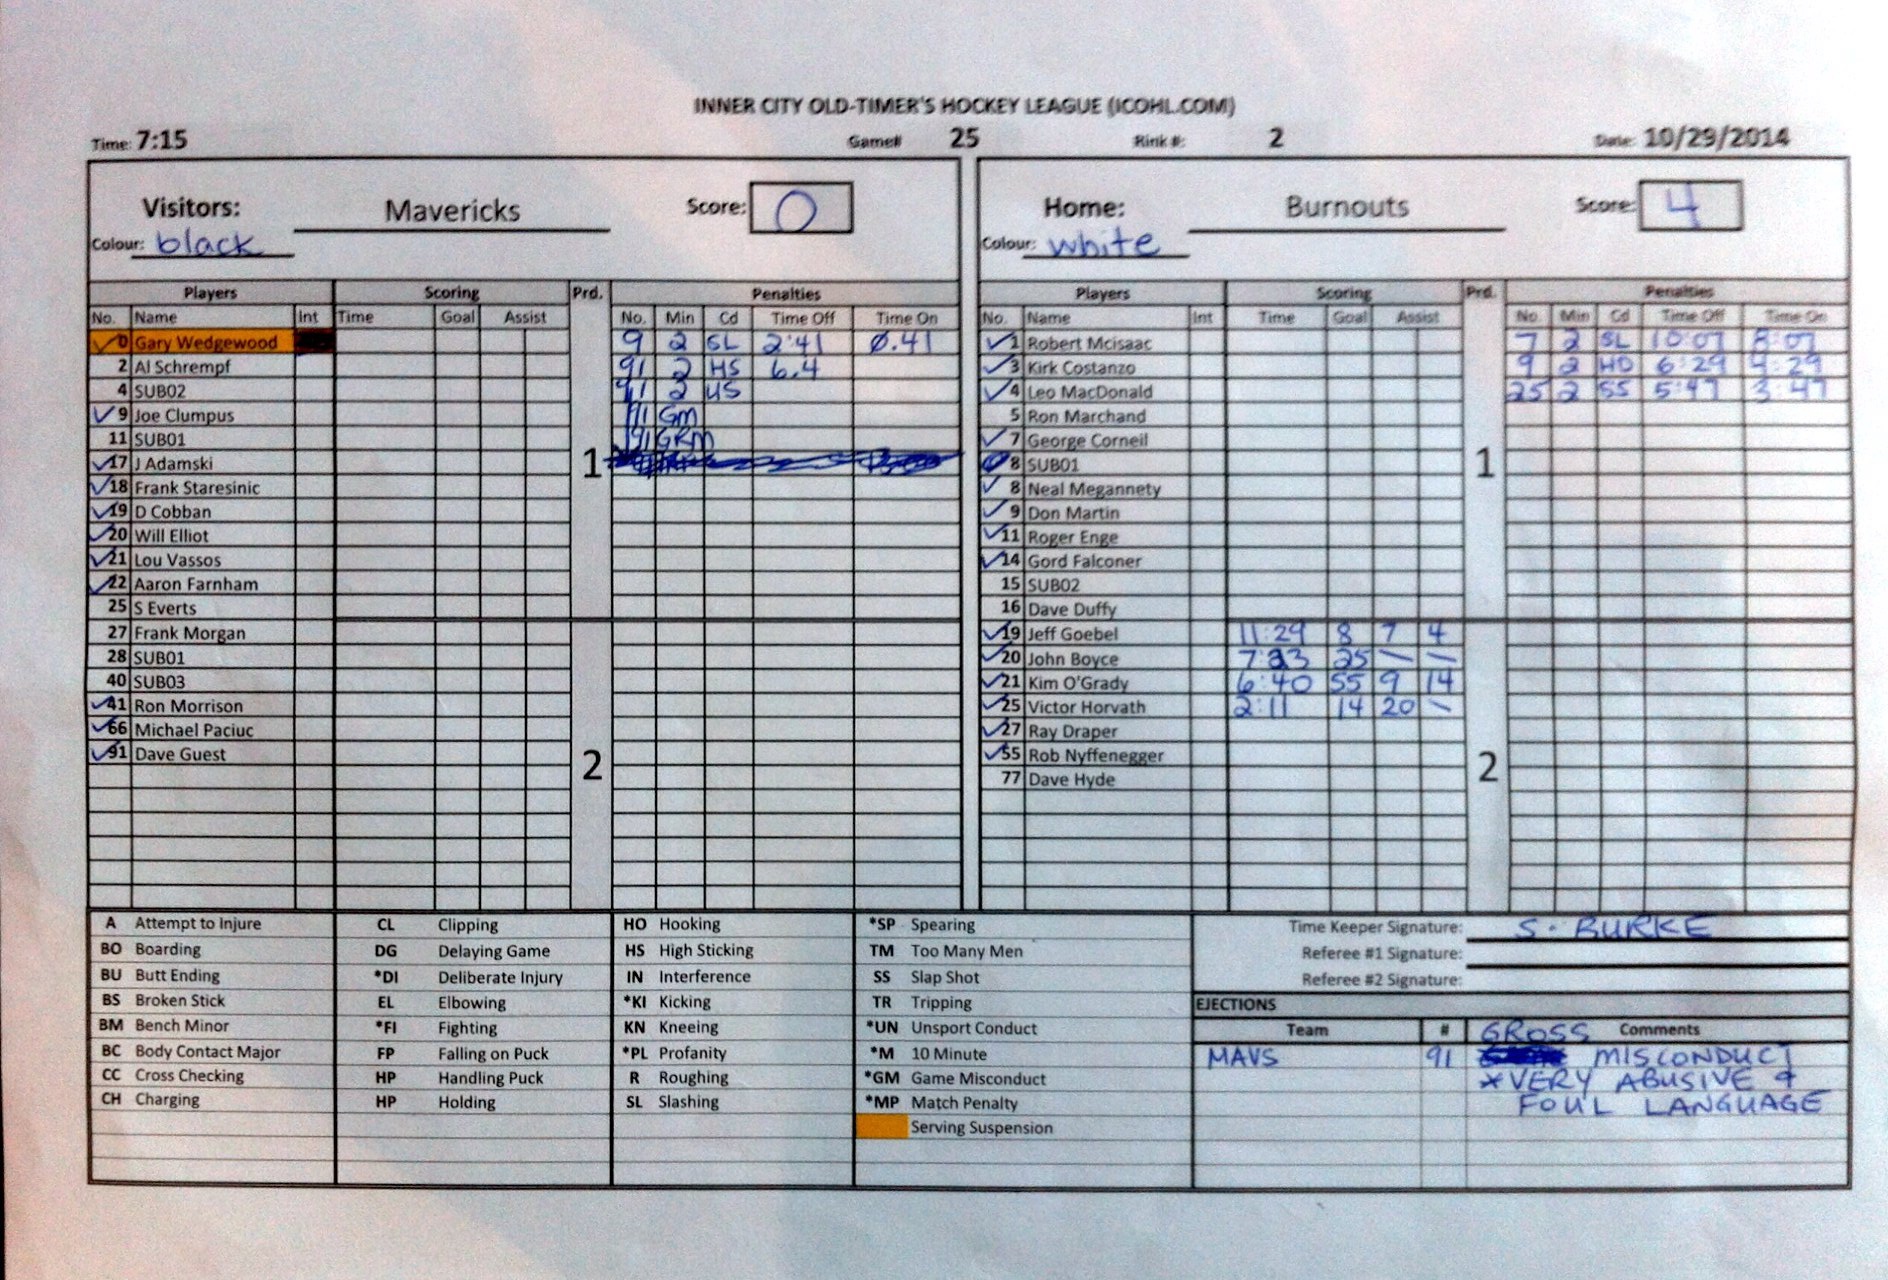 INNER CITY OLD-TIMER'S HOCKEY LEAGUE (ICOHL.COM)
Time: 7:15 Game# 25 Rink #: 2 Date: 10/29/2014
Visitors: Mavericks Score: 0 Home: Burnouts Score: 4
Colour: black Colour: white
Players Scoring Prd. Penalties Players Scoring Prd. Penalties
No. Name Int Time Goal Assist No. Min Cd Time Off Time On No. Name Int Time Goal Assist No. Min Cd Time Off Time On
0 Gary Wedgewood 9 2 SL 2:41 0.41 1 Robert Mcisaac 7 2 SL 10:07 8:07
2 Al Schrempf 91 2 HS 6.4 3 Kirk Costanzo 9 2 HO 6:29 4:29
4 SUB02 91 2 US 4 Leo MacDonald 25 2 SS 5:47 3:47
9 Joe Clumpus 91 GM 5 Ron Marchand
11 SUB01 91 GRM 7 George Corneil
17 J Adamski 1 8 SUB01 1
18 Frank Staresinic 8 Neal Megannety
19 D Cobban 9 Don Martin
20 Will Elliot 11 Roger Enge
21 Lou Vassos 14 Gord Falconer
22 Aaron Farnham 15 SUB02
25 S Everts 16 Dave Duffy
27 Frank Morgan 19 Jeff Goebel 11:29 8 7 4
28 SUB01 20 John Boyce 25 — —
40 SUB03 21 Kim O'Grady 6:40 55 9 14
41 Ron Morrison 25 Victor Horvath 2:11 14 20 —
66 Michael Paciuc 27 Ray Draper
91 Dave Guest 2 55 Rob Nyffenegger 2
77 Dave Hyde
A Attempt to Injure CL Clipping HO Hooking *SP Spearing Time Keeper Signature: S. BURKE
BO Boarding DG Delaying Game HS High Sticking TM Too Many Men Referee #1 Signature:
BU Butt Ending *DI Deliberate Injury IN Interference SS Slap Shot Referee #2 Signature:
BS Broken Stick EL Elbowing *KI Kicking TR Tripping EJECTIONS
BM Bench Minor *FI Fighting KN Kneeing *UN Unsport Conduct Team # GROSS Comments
BC Body Contact Major FP Falling on Puck *PL Profanity *M 10 Minute MAVS 91 MISCONDUCT
CC Cross Checking HP Handling Puck R Roughing *GM Game Misconduct *VERY ABUSIVE &
CH Charging HP Holding SL Slashing *MP Match Penalty FOUL LANGUAGE
Serving Suspension